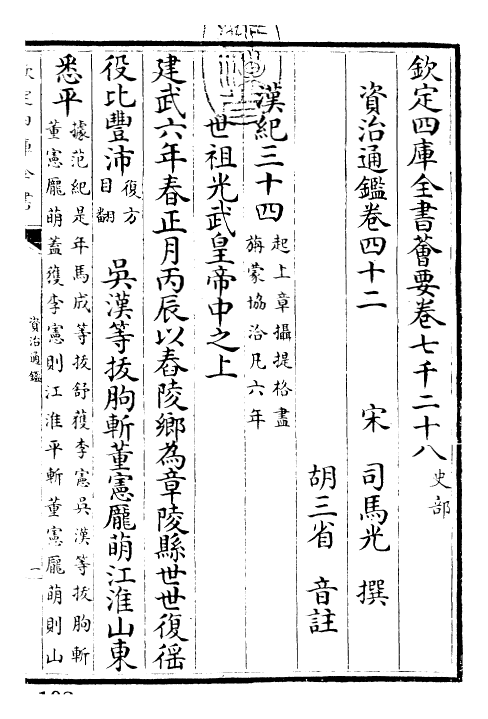 欽定四庫全書薈要卷七千二十八 史部
資治通鑑卷四十二
宋 司馬光 撰
胡三省 音註
漢紀三十四 起上章攝提格盡
旃蒙協洽凡六年
世祖光武皇帝中之上
建武六年春正月丙辰以舂陵鄉為章陵縣世世復徭
役比豐沛 復方
目翻
吳漢等拔朐斬董憲龐萌江淮山東
悉平 據范紀是年馬成等拔舒獲李憲吳漢等拔朐斬
董憲龐萌蓋獲李憲則江淮平斬董憲龐萌則山
欽定四庫全書
資治通鑑
一